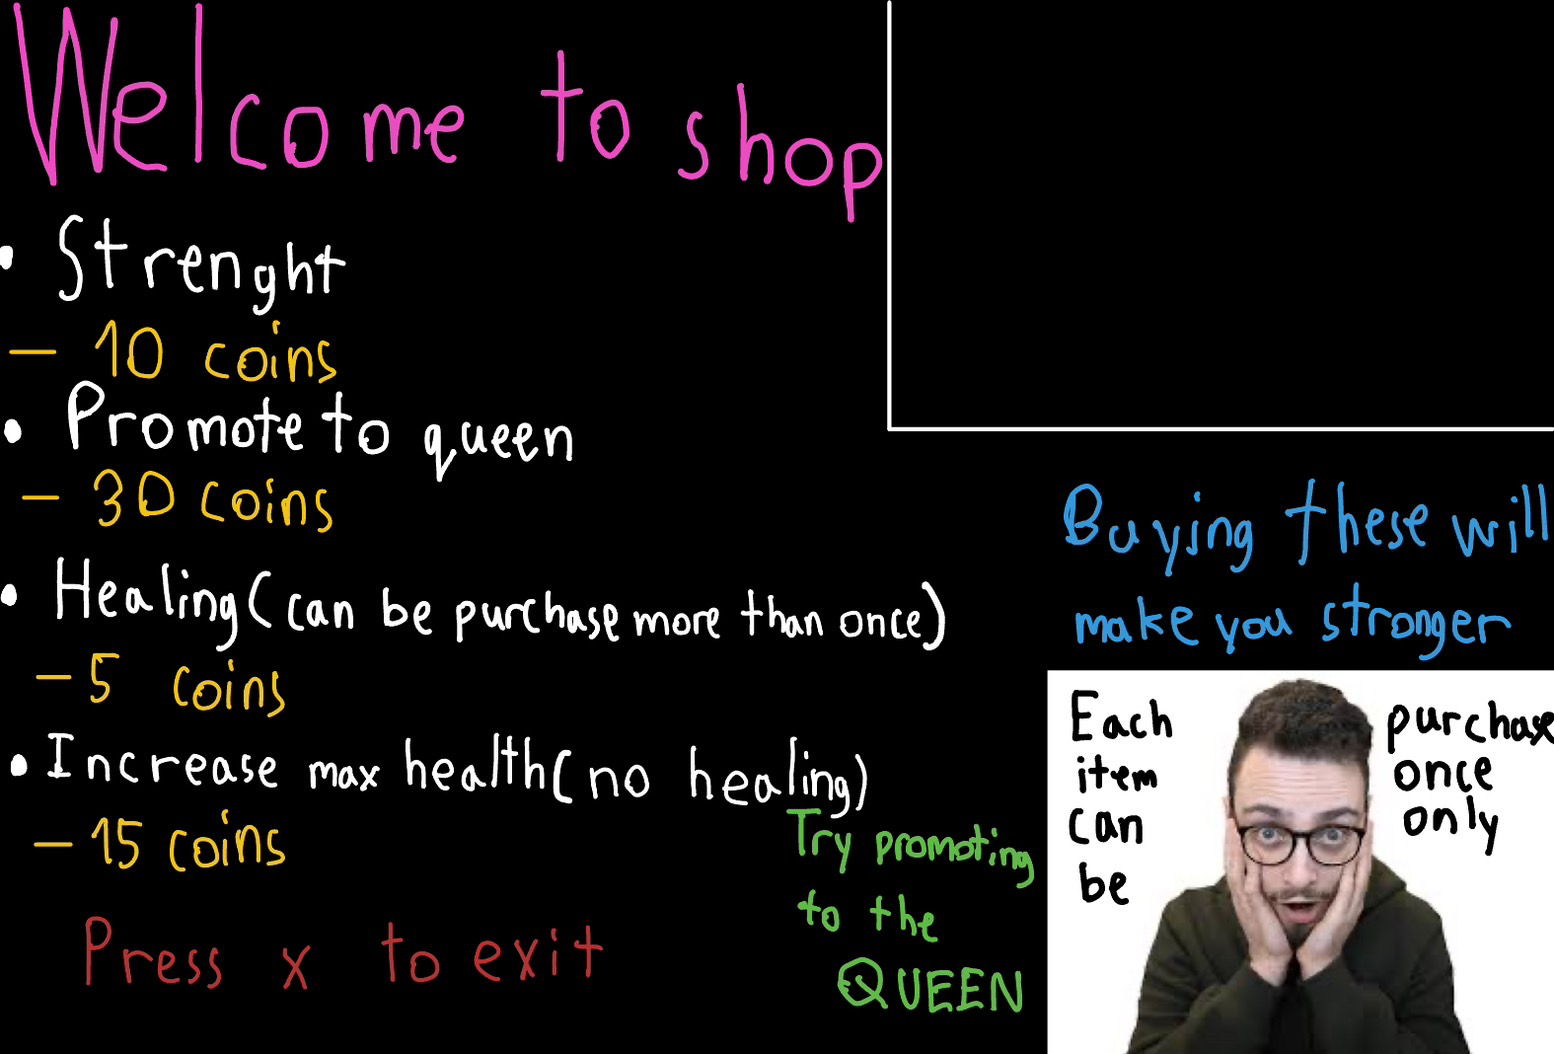 Welcome to shop
• Strenght
- 10 coins
• Promote to queen
- 30 coins
• Healing (can be purchase more than once)
- 5 coins
• Increase max health (no healing)
- 15 coins
Press x to exit
Try promoting
to the
QUEEN
Buying these will
make you stronger
Each
item
can
be
purchase
once
only